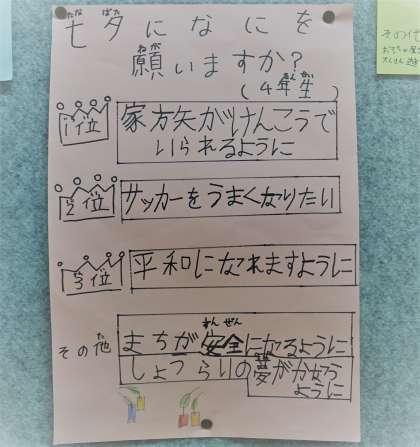 七夕になにを
願いますか?
(4年生)
1位 家族がけんこうで
いられるように
2位 サッカーをうまくなりたい
3位 平和になれますように
その他 まちが安全になるように
しょうらいの夢がかなう
ように
その他